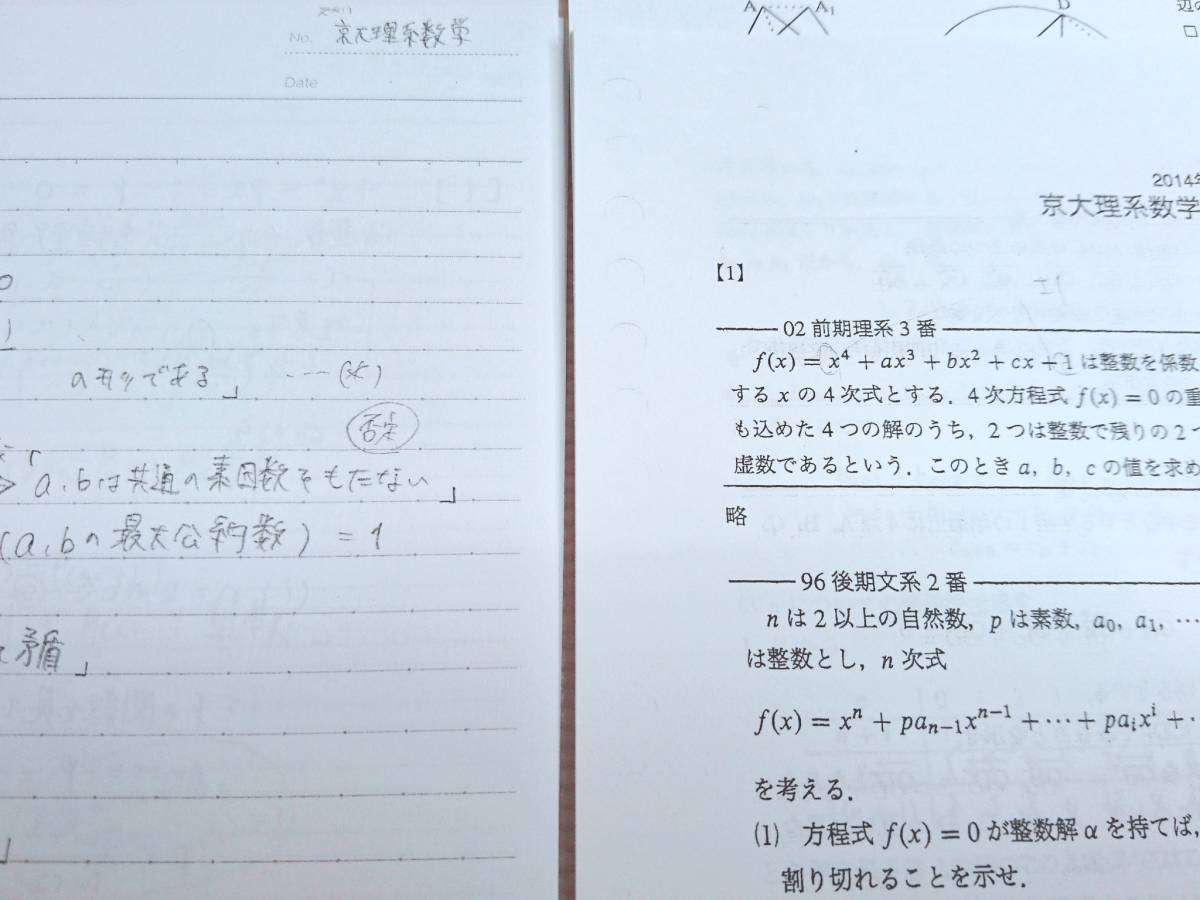 No. 京大理系数学
Date
0
1
のモノである」 ……(*)
否定
「a, bは共通の素因数をもたない」
(a, bの最大公約数) = 1
矛盾」
A A₁ D
辺の
2014年
京大理系数学
【1】
02 前期理系 3 番
f(x) = x⁴ + ax³ + bx² + cx + 1 は整数を係数
する x の 4 次式とする．4 次方程式 f(x) = 0 の重
も込めた 4 つの解のうち，2 つは整数で残りの 2 つ
虚数であるという．このとき a，b，c の値を求め
略
96 後期文系 2 番
n は 2 以上の自然数，p は素数，a₀，a₁，…
は整数とし，n 次式
f(x) = xⁿ + paₙ₋₁xⁿ⁻¹ + ⋯ + paᵢxⁱ + ⋯
を考える．
(1) 方程式 f(x) = 0 が整数解 α を持てば，
割り切れることを示せ．